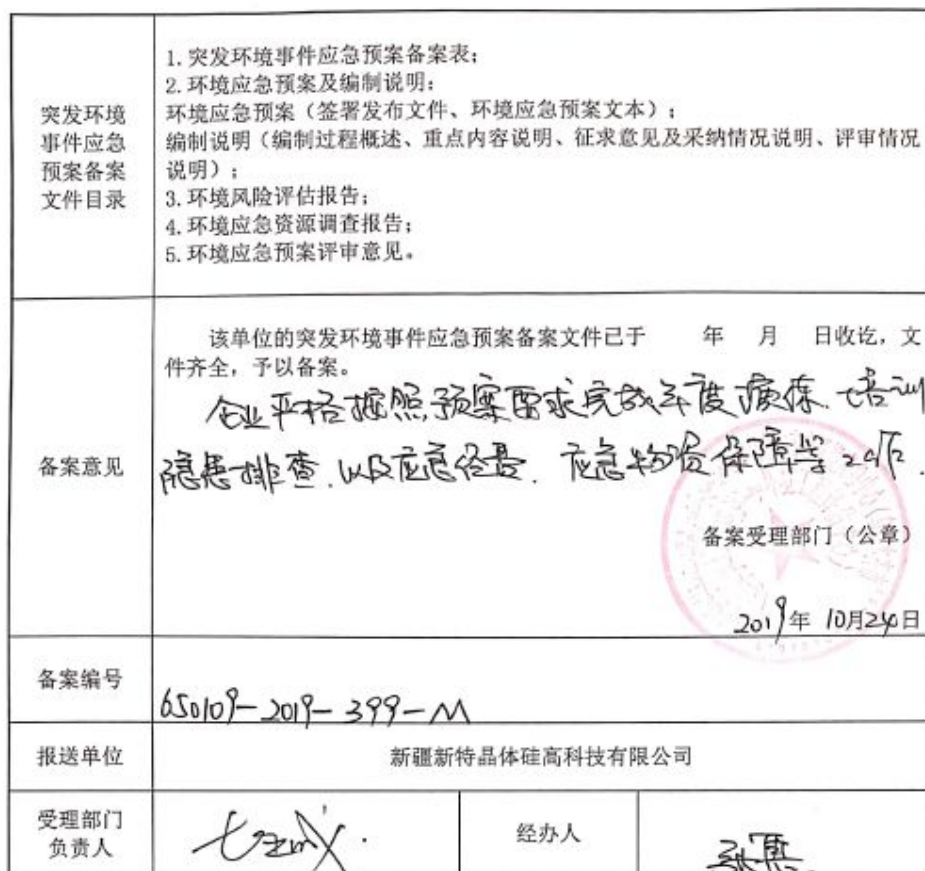 突发环境
事件应急
预案备案
文件目录
1.突发环境事件应急预案备案表;
2.环境应急预案及编制说明:
环境应急预案（签署发布文件、环境应急预案文本）;
编制说明（编制过程概述、重点内容说明、征求意见及采纳情况说明、评审情况
说明）;
3.环境风险评估报告;
4.环境应急资源调查报告;
5.环境应急预案评审意见。
备案意见
该单位的突发环境事件应急预案备案文件已于 年 月 日收讫，文
件齐全，予以备案。
企业严格按照预案要求完成年度演练、培训
隐患排查、以及应急经费、应急物资保障等工作.
备案受理部门（公章）
2019年 10月24日
备案编号
650109-2019-399-M
报送单位
新疆新特晶体硅高科技有限公司
受理部门
负责人
经办人